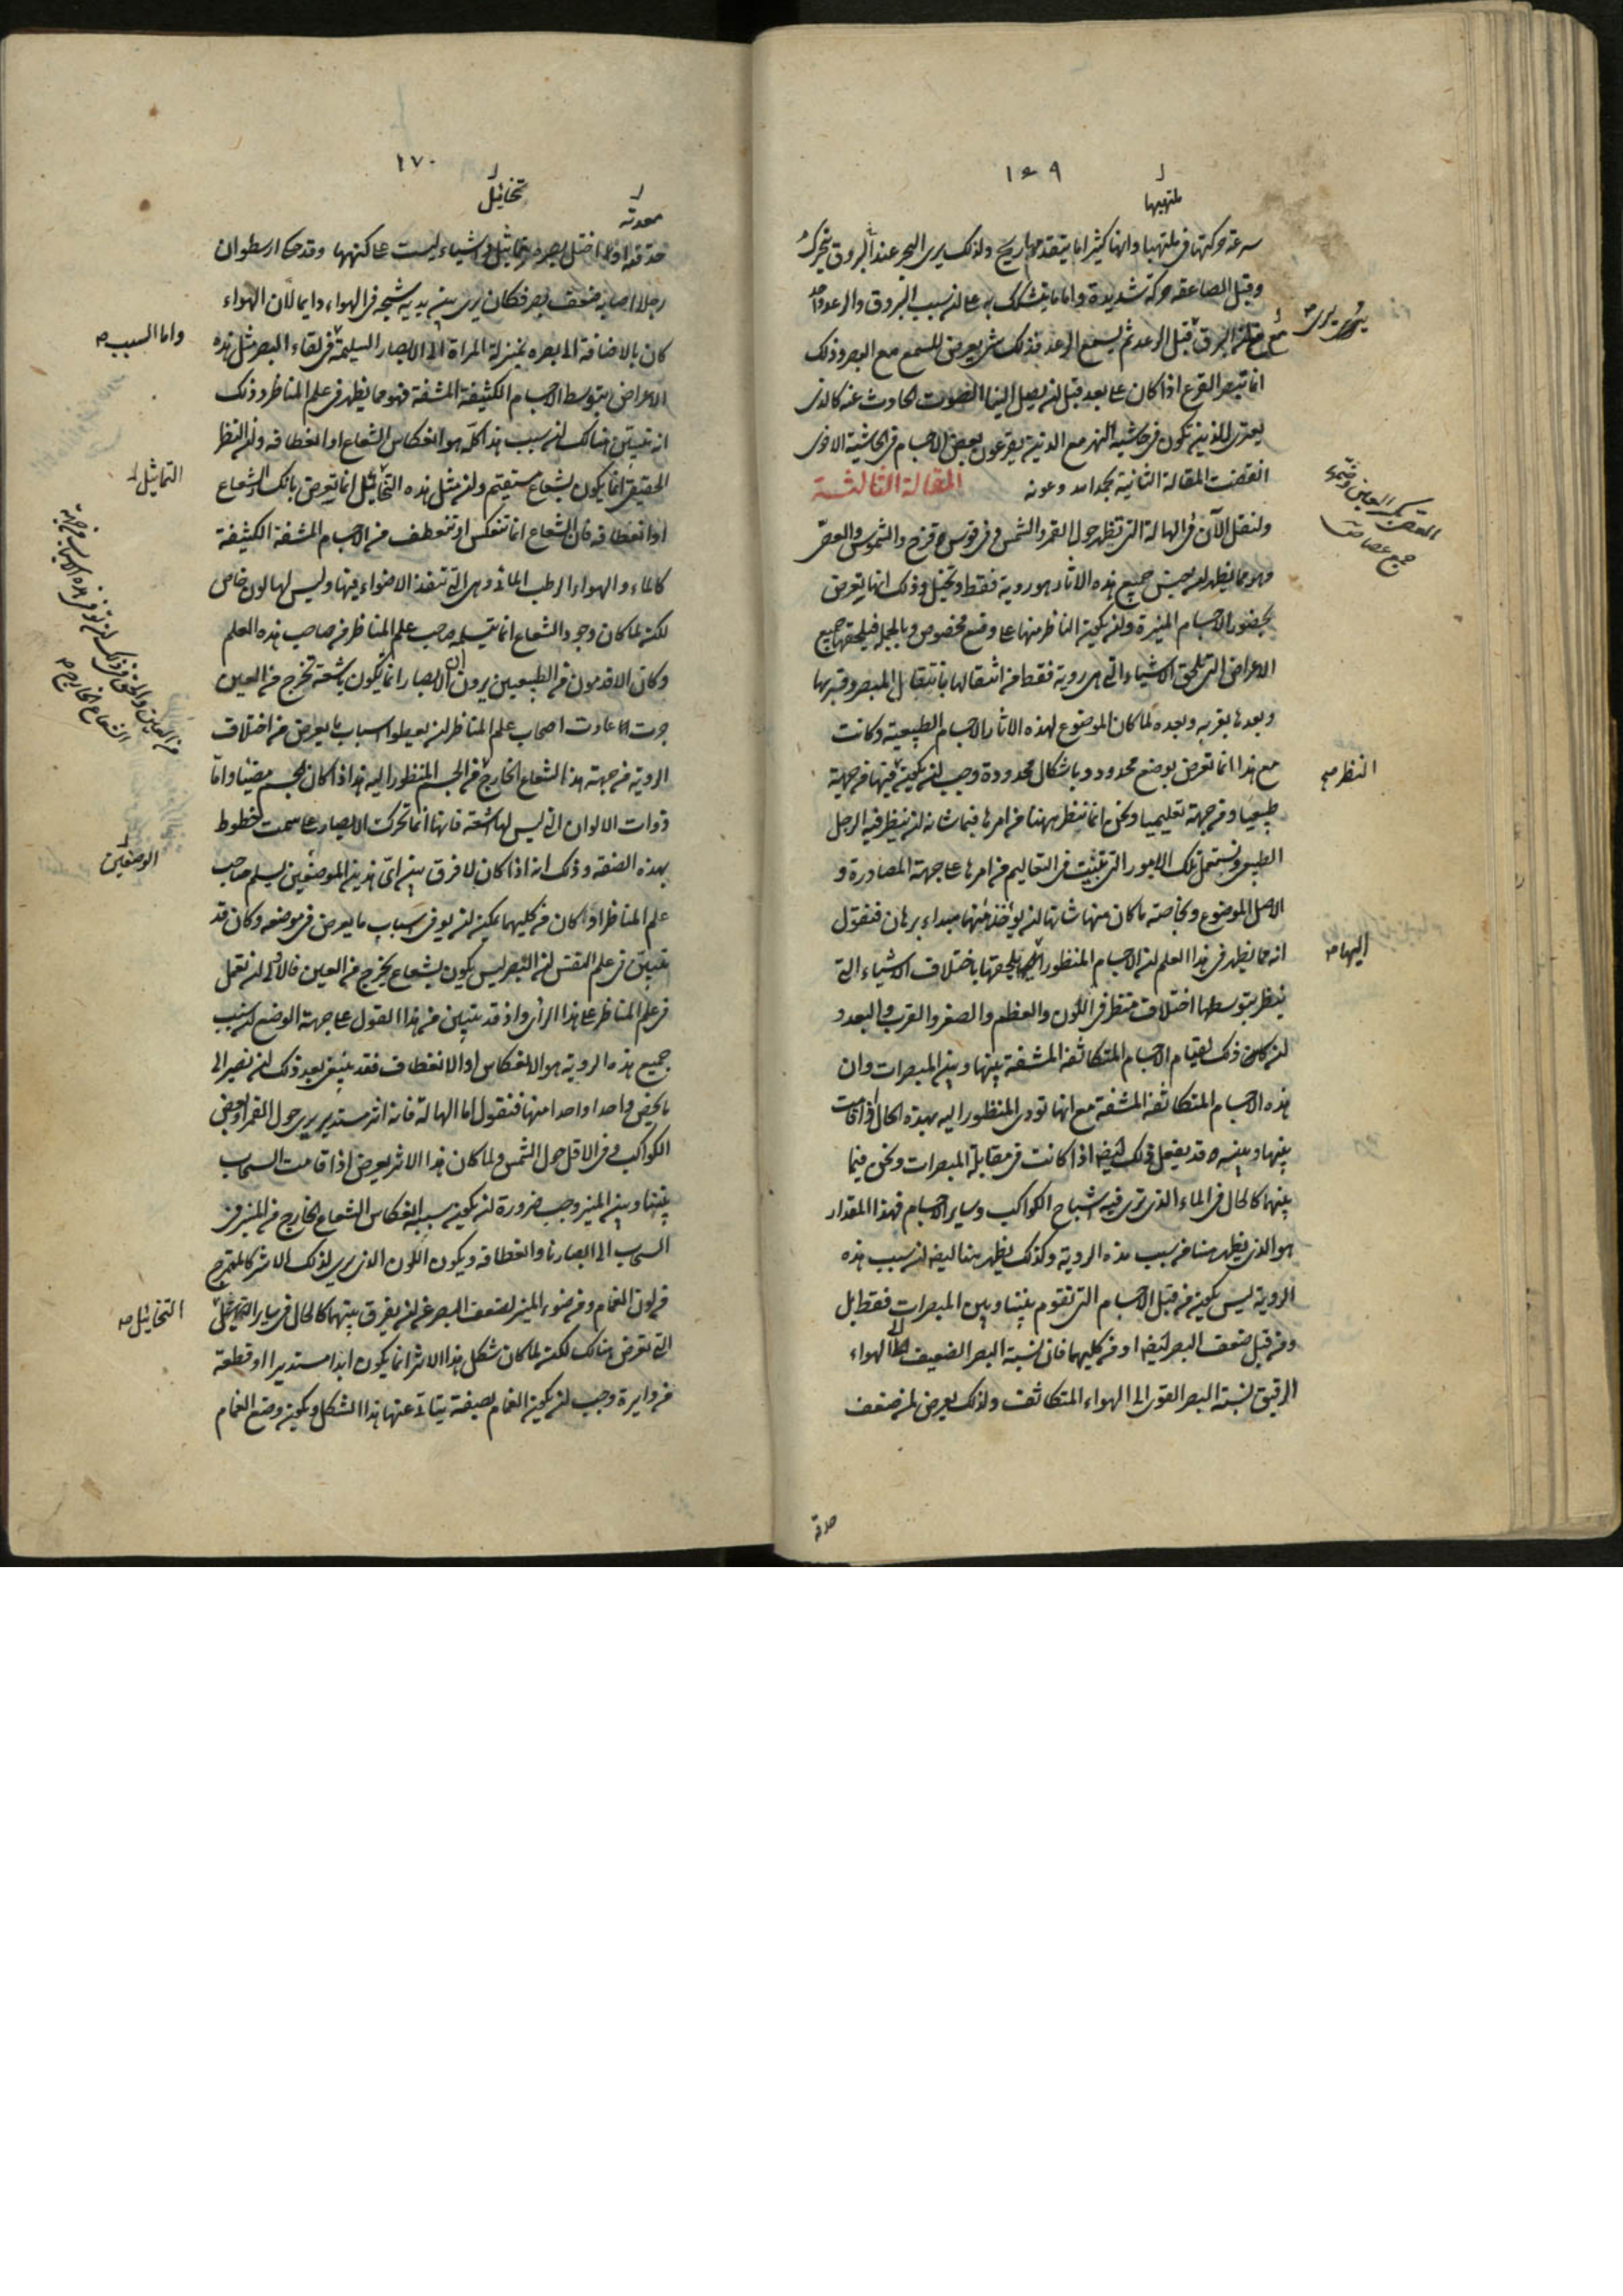 ١٦٩
ملتهبها
سرعة حركتها في ملتهبها وانها كثيرا ما يتقدمها ريح ولذلك يرى البحر عند البروق يتحرك
وقبل الصاعقة حركة شديدة واما ما يتشكك به على ان سبب البروق والرعد واحد
مع ان البرق قبل الرعد ثم يسمع الرعد فذلك شي يعرض للسمع مع البصر وذلك
انما نبصر القرع اذا كان على بعد قبل ان يصل الينا الصوت الحادث عنه كالذي
يعتري الذين تكون في حاشية النهر مع الذين يقرعون بعض الاجسام في الحاشية الاخرى
انقضت المقالة الثانية بحمد الله وعونه المقالة الثالثة
ولنقل الآن في الهالة التي تظهر حول القمر والشمس وفي قوس قزح والشموس والعصي
وهو مما يظهر ان جنس جميع هذه الاثار هو روية فقط وتخيل وذلك انها تعرض
بحضور الاجسام المنيرة وان يكون الناظر منها على وضع مخصوص وبالجملة فيلحقها جميع
الاعراض التي تلحق الاشياء التي هي روية فقط من انتقالها بانتقال المبصر وقربها
وبعدها بقربه وبعده ولما كان الموضوع لهذه الاثار الاجسام الطبيعية وكانت
مع هذا انما تعرض بوضع محدود وباشكال محدودة وجب ان يكون فيها من جهة
طبيعيا ومن جهة تعليميا ونحن انما ننظر ههنا من امرها فيما شانه ان ينظر فيه الرجل
الطبيعي ونستعمل تلك الامور التي تثبت في التعاليم من امرها على جهة المصادرة و
الاصل الموضوع وبخاصة ما كان منها شانها ان يؤخذ منها مبداء برهان فنقول
انه مما يظهر في هذا العلم ان الاجسام المنظور اليها يلحقها باختلاف الاشياء التي
ينظر بتوسطها اختلاف منظر في اللون والعظم والصغر والقرب والبعد و
ان كان ذلك لقيام الاجسام المتكاثفة المشفة بينها وبين المبصرات وان
هذه الاجسام المتكاثفة المشفة مع انها تودي المنظور اليه بهذه الحال اذا قامت
بينها وبينه قد يفعل ذلك ايضا اذا كانت في مقابلة المبصرات ونحن فيما
بينهما كالحال في الماء الذي ترى فيه اشباح الكواكب وساير الاجسام فهذا المقدار
هو الذي يظهر هنا من سبب هذه الروية وكذلك يظهر هنا ايضا ان سبب هذه
الروية ليس يكون من قبل الاجسام التي تقوم بيننا وبين المبصرات فقط بل
ومن قبل ضعف البصر ايضا او من كليهما فان نسبة البصر الضعيف الى الهواء
الرقيق نسبة البصر القوي الى الهواء المتكاثف ولذلك يعرض لمن ضعف
حدقة
يرى
جمع عصا
النظر
اليها
١٧٠
معدته
تخائل
حدقته او لما اختل بصره تماثل اشياء ليست على كنهها وقد حكى ارسطو ان
رجلا اصابه ضعف بصر فكان يرى بين يديه شبحه في الهواء دايما لان الهواء
كان بالاضافة الى بصره بمنزلة المراة الى الابصار السليمة في لقاء البصر مثل هذه
الاعراض بتوسط الاجسام الكثيفة المشفة فهو مما يظهر في علم المناظر وذلك
انه تبين هنالك ان سبب هذا كله هو انعكاس الشعاع او انعطافه وان النظر
الحقيقي انما يكون بشعاع مستقيم وان مثل هذه التخائل انما تعرض بانكسار الشعاع
او انعطافه فان الشعاع انما تنعكس او تنعطف من الاجسام المشفة الكثيفة
كالماء والهواء الرطب المائي وهي التي تنفذ الاضواء فيها وليس لها لون خاص
لكن لما كان وجود الشعاع انما يتسلمه صاحب علم المناظر من صاحب هذه العلم
وكان الاقدمون من الطبيعيين يرون ان الابصار انما يكون باشعة تخرج من العين
جرت العادت اصحاب علم المناظر ان يعطوا اسباب ما يعرض من اختلاف
الروية من جهة هذا الشعاع الخارج من الجسم المنظور اليه هذا اذا كان الجسم مضيئا واما
ذوات الالوان التي ليس لها اشعة فانها انما تحرك الابصار على سمت الخطوط
بهذه الصفة وذلك انه اذا كان لا فرق بين اي هذين الموضعين يسلم صاحب
علم المناظر اذا كان من كليهما يمكن ان يوفي اسباب ما يعرض في موضعه وكان قد
تبين في علم النفس ان البصر ليس يكون بشعاع يخرج من العين فالاولى ان نعمل
في علم المناظر على هذا الراي واذ قد تبين من هذا القول على جهة الوضع ان سبب
جميع هذه الروية هو الانعكاس او الانعطاف فقد ينبغي بعد ذلك ان نصير الى
ما يخص واحدا واحدا منها فنقول اما الهالة فانه اثر مستدير يرى حول القمر او بعض
الكواكب وفي الاقل حول الشمس ولما كان هذا الاثر يعرض اذا قامت السحاب
بيننا وبين المنير وجب ضرورة ان يكون سببه انعكاس الشعاع الخارج من المنير في
السحاب الى ابصارنا وانعطافه ويكون اللون الذي يرى لذلك الاثر كالممتزج
من لون الغمام ومن ضوء المنير لضعف البصر عن ان يفرق بينهما كالحال في ساير التخائل
التي تعرض هنالك لكن لما كان شكل هذا الاثر انما يكون ابدا مستديرا او قطعة
من دايرة وجب ان يكون الغمام بصفة يتاتى عنها هذا الشكل ويكون وضع الغمام
واما السبب
التماثيل
الشعاع الخارج
الوضعين
التخائل